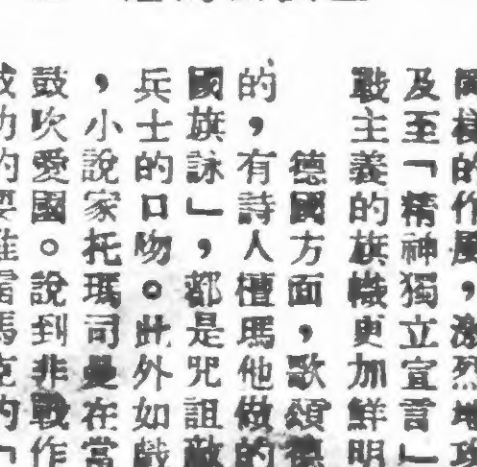 樣的作風，激烈地攻
及至「精神獨立宣言」
戰主義的旗幟更加鮮明
德國方面，歌頌德
的，有詩人檀瑪他做的
國旗詠」，都是咒詛敵
兵士的口吻。此外如戲
，小說家托瑪司曼在當
鼓吹愛國。說到非戰作
成功的要推雷馬克的「